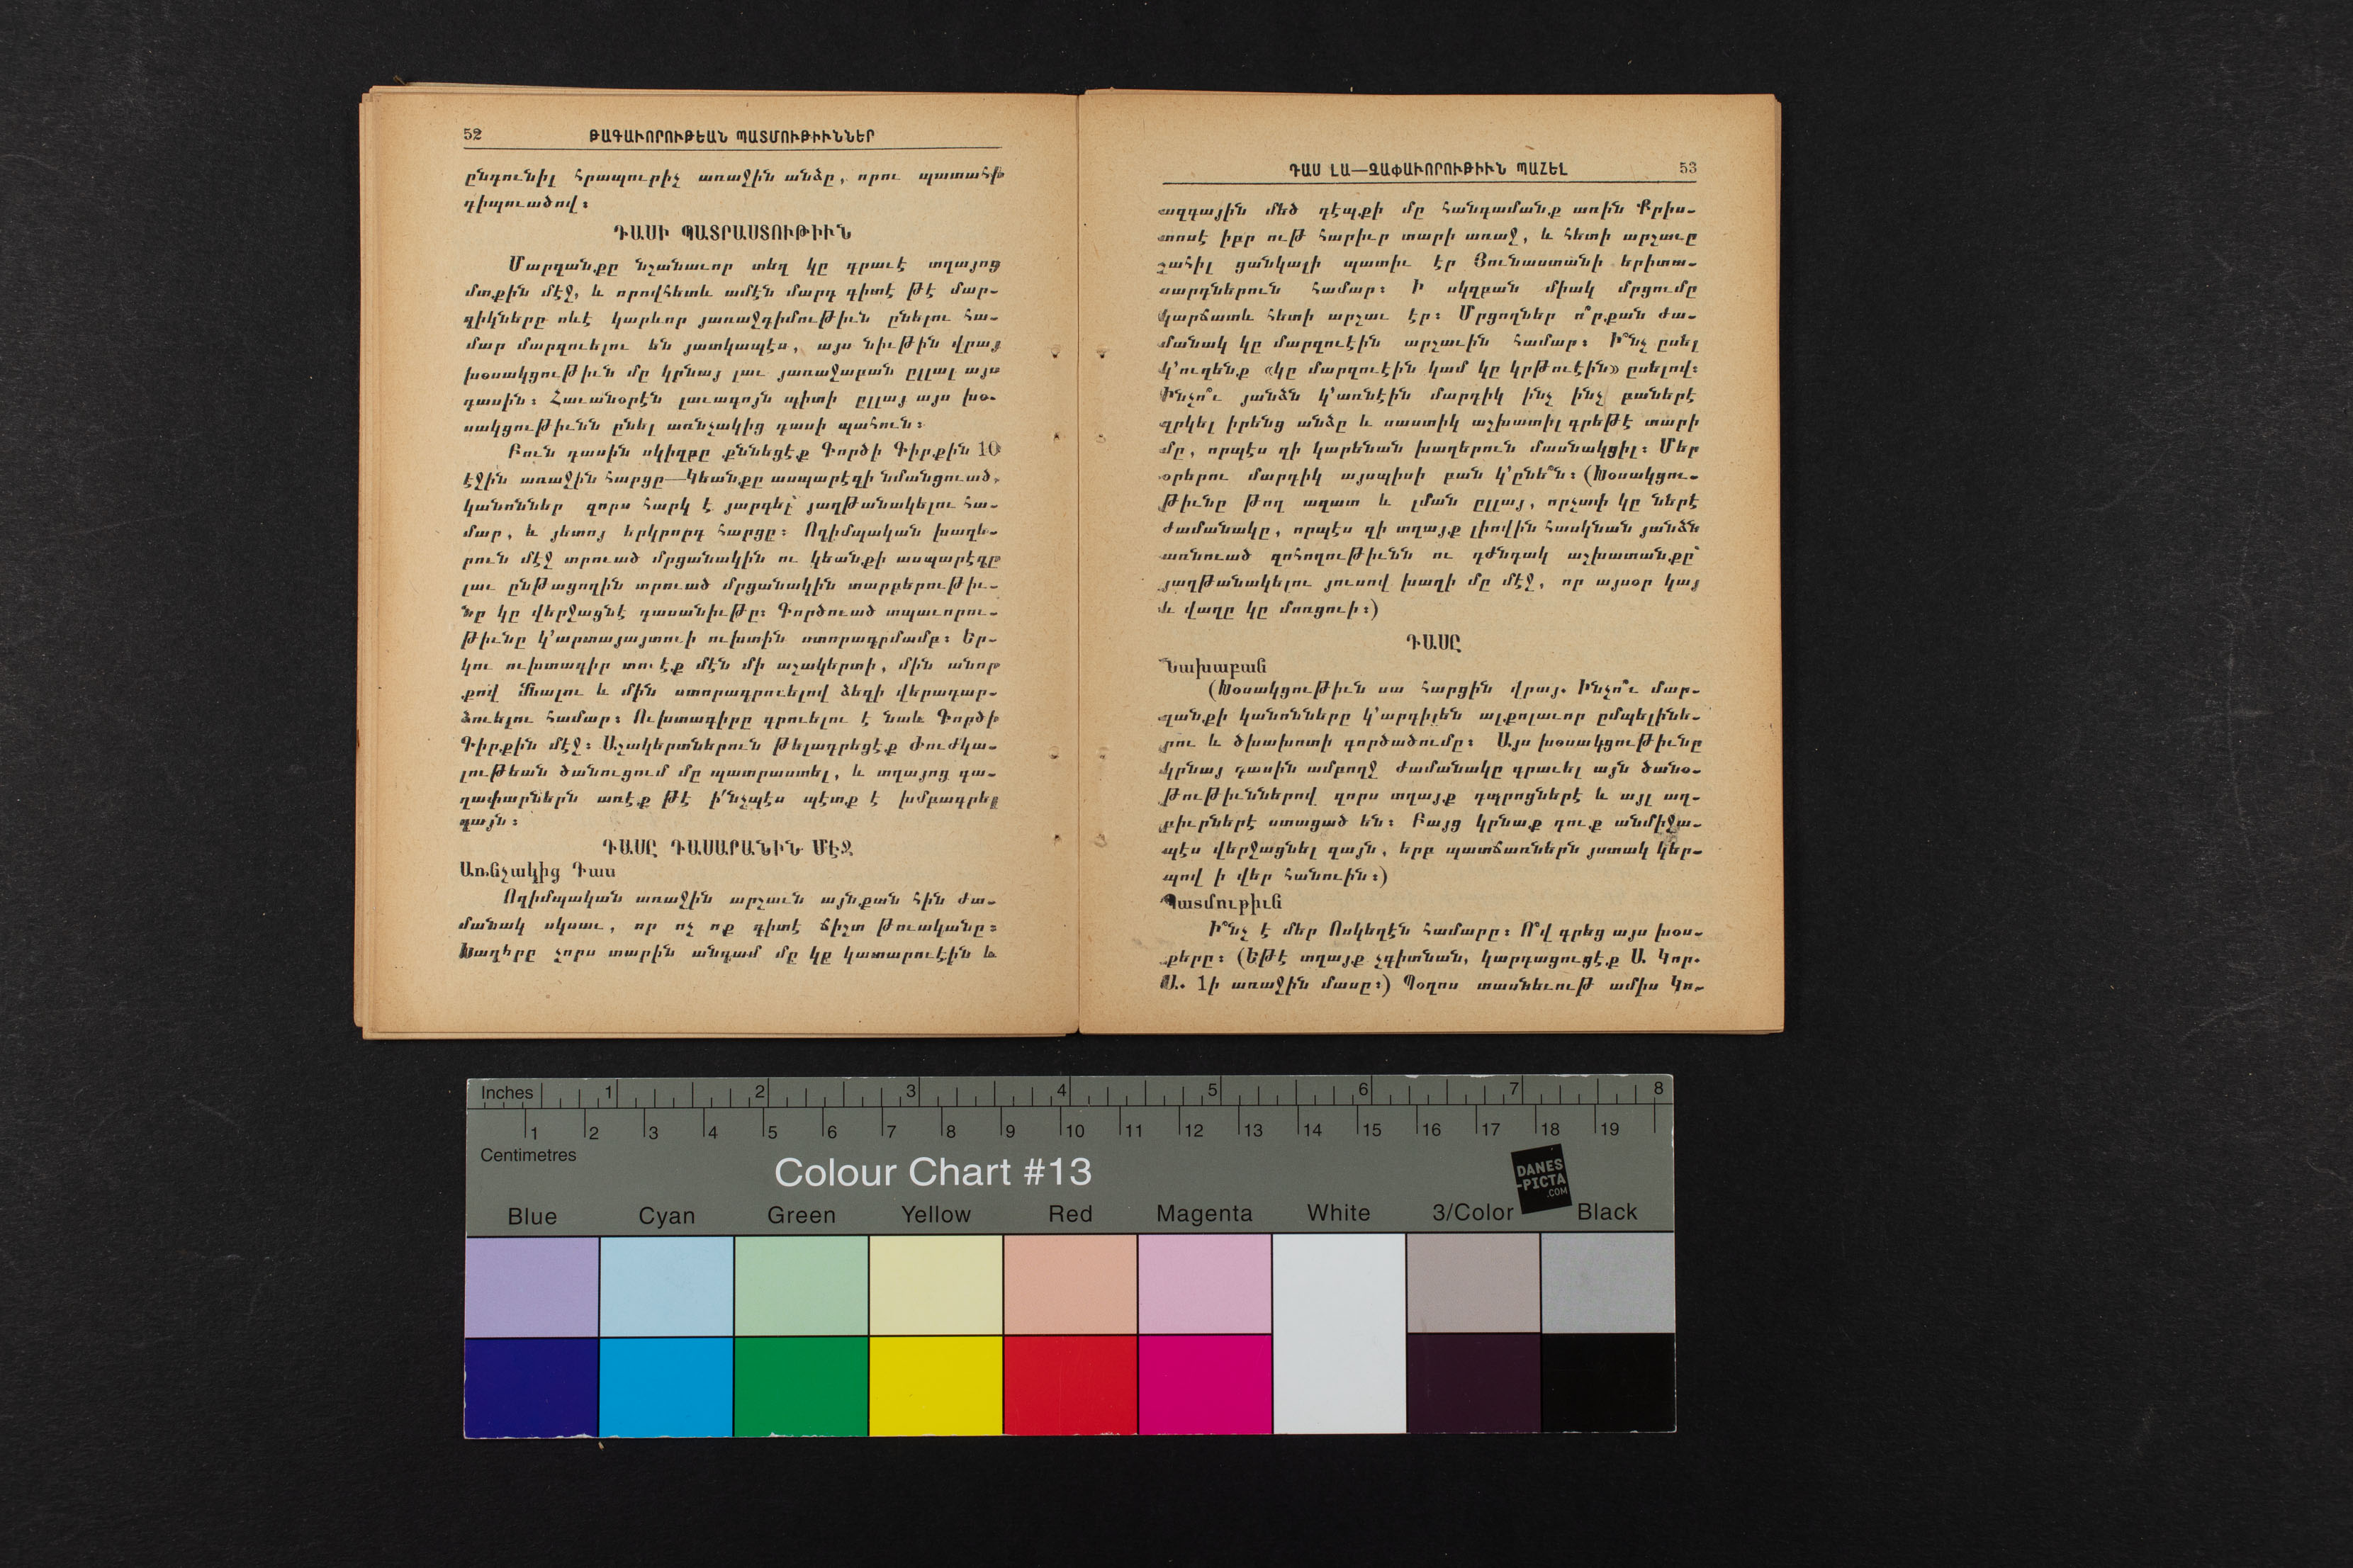 52
ԹԱԳԱՒՈՐՈՒԹԵԱՆ ՊԱՏՄՈՒԹԻՒՆՆԵՐ
ընդունիլ հրապուրիչ առաջին անձը, որու պատահի
դիպուածով։
ԴԱՍԻ ՊԱՏՐԱՍՏՈՒԹԻՒՆ
Մարզանքը նշանաւոր տեղ կը գրաւէ տղայոց
մտքին մէջ, և որովհետև ամէն մարդ գիտէ թէ մար-
զիկները ոևէ կարևոր յառաջդիմութիւն ընելու հա-
մար մարզուելու են յատկապէս, այս նիւթին վրայ
խօսակցութիւն մը կրնայ լաւ յառաջաբան ըլլալ այս
դասին։ Հաւանօրէն լաւագոյն պիտի ըլլայ այս խօ-
սակցութիւնն ընել առնչակից դասի պահուն։
Բուն դասին սկիզբը քննեցէք Գործի Գիրքին 10
էջին առաջին հարցը—Կեանքը ասպարէզի նմանցուած,
կանոններ զորս հարկ է յարգել՝ յաղթանակելու հա-
մար, և յետոյ երկրորդ հարցը։ Ողիմպական խաղե-
րուն մէջ տրուած մրցանակին ու կեանքի ասպարէզը
լաւ ընթացողին տրուած մրցանակին տարբերութիւ-
նը կը վերջացնէ դասանիւթը։ Գործուած տպաւորու-
թիւնը կ՚արտայայտուի ուխտին ստորագրմամբ։ Եր-
կու ուխտագիր տուէք մէն մի աշակերտի, մին անոր
քով մնալու և մին ստորագրուելով ձեզի վերադար-
ձուելու համար։ Ուխտագիրը գրուելու է նաև Գործի
Գիրքին մէջ։ Աշակերտներուն թելադրեցէք Ժուժկա-
լութեան ծանուցում մը պատրաստել, և տղայոց գա-
ղափարներն առէք թէ ի՛նչպէս պէտք է խմբագրել
զայն։
ԴԱՍԸ ԴԱՍԱՐԱՆԻՆ ՄԷՋ
Առնչակից Դաս
Ողիմպական առաջին արշաւն այնքան հին ժա-
մանակ սկսաւ, որ ոչ ոք գիտէ ճիշտ թուականը։
Խաղերը չորս տարին անգամ մը կը կատարուէին և
ԴԱՍ ԼԱ—ՉԱՓԱՒՈՐՈՒԹԻՒՆ ՊԱՀԵԼ
53
ազդային մեծ դէպքի մը հանգամանք առին Քրիս-
տոսէ իբր ութ հարիւր տարի առաջ, և հետի արշաւը
շահիլ ցանկալի պատիւ էր Յունաստանի երիտա-
սարդներուն համար։ Ի սկզբան միակ մրցումը
կարճատև հետի արշաւ էր։ Մրցողներ ո՞րքան ժա-
մանակ կը մարզուէին արշաւին համար։ Ի՞նչ ըսել
կ՚ուզենք «կը մարզուէին կամ կը կրթուէին» ըսելով։
Ինչո՞ւ յանձն կ՚առնէին մարդիկ ինչ ինչ բաներէ
զրկել իրենց անձը և սաստիկ աշխատիլ գրեթէ տարի
մը, որպէս զի կարենան խաղերուն մասնակցիլ։ Մեր
օրերու մարդիկ այսպիսի բան կ՚ընե՞ն։ (Խօսակցու-
թիւնը թող ազատ և լման ըլլայ, որչափ կը ներէ
ժամանակը, որպէս զի տղայք լիովին հասկնան յանձն
առնուած զոհողութիւնն ու դժնդակ աշխատանքը՝
յաղթանակելու յուսով խաղի մը մէջ, որ այսօր կայ
և վաղը կը մոռցուի։)
ԴԱՍԸ
Նախաբան
(Խօսակցութիւն սա հարցին վրայ. Ինչո՞ւ մար-
զանքի կանոնները կ՚արգիլեն ալքոլաւոր ըմպելինե-
րու և ծխախոտի գործածումը։ Այս խօսակցութիւնը
կրնայ դասին ամբողջ ժամանակը գրաւել այն ծանօ-
թութիւններով զորս տղայք դպրոցներէ և այլ աղ-
բիւրներէ ստացած են։ Բայց կրնաք դուք անմիջա-
պէս վերջացնել զայն, երբ պատճառներն յստակ կեր-
պով ի վեր հանուին։)
Պատմութիւն
Ի՞նչ է մեր Ոսկեղէն համարը։ Ո՞վ գրեց այս խօս-
քերը։ (Եթէ տղայք չգիտնան, կարդացուցէք Ա. Կոր.
Ա. 1ի առաջին մասը։) Պօղոս տասնեւութ ամիս Կո-
Inches 1 2 3 4 5 6 7 8
1 2 3 4 5 6 7 8 9 10 11 12 13 14 15 16 17 18 19
Centimetres
Colour Chart #13
DANES
-PICTA
.COM
Blue Cyan Green Yellow Red Magenta White 3/Color Black